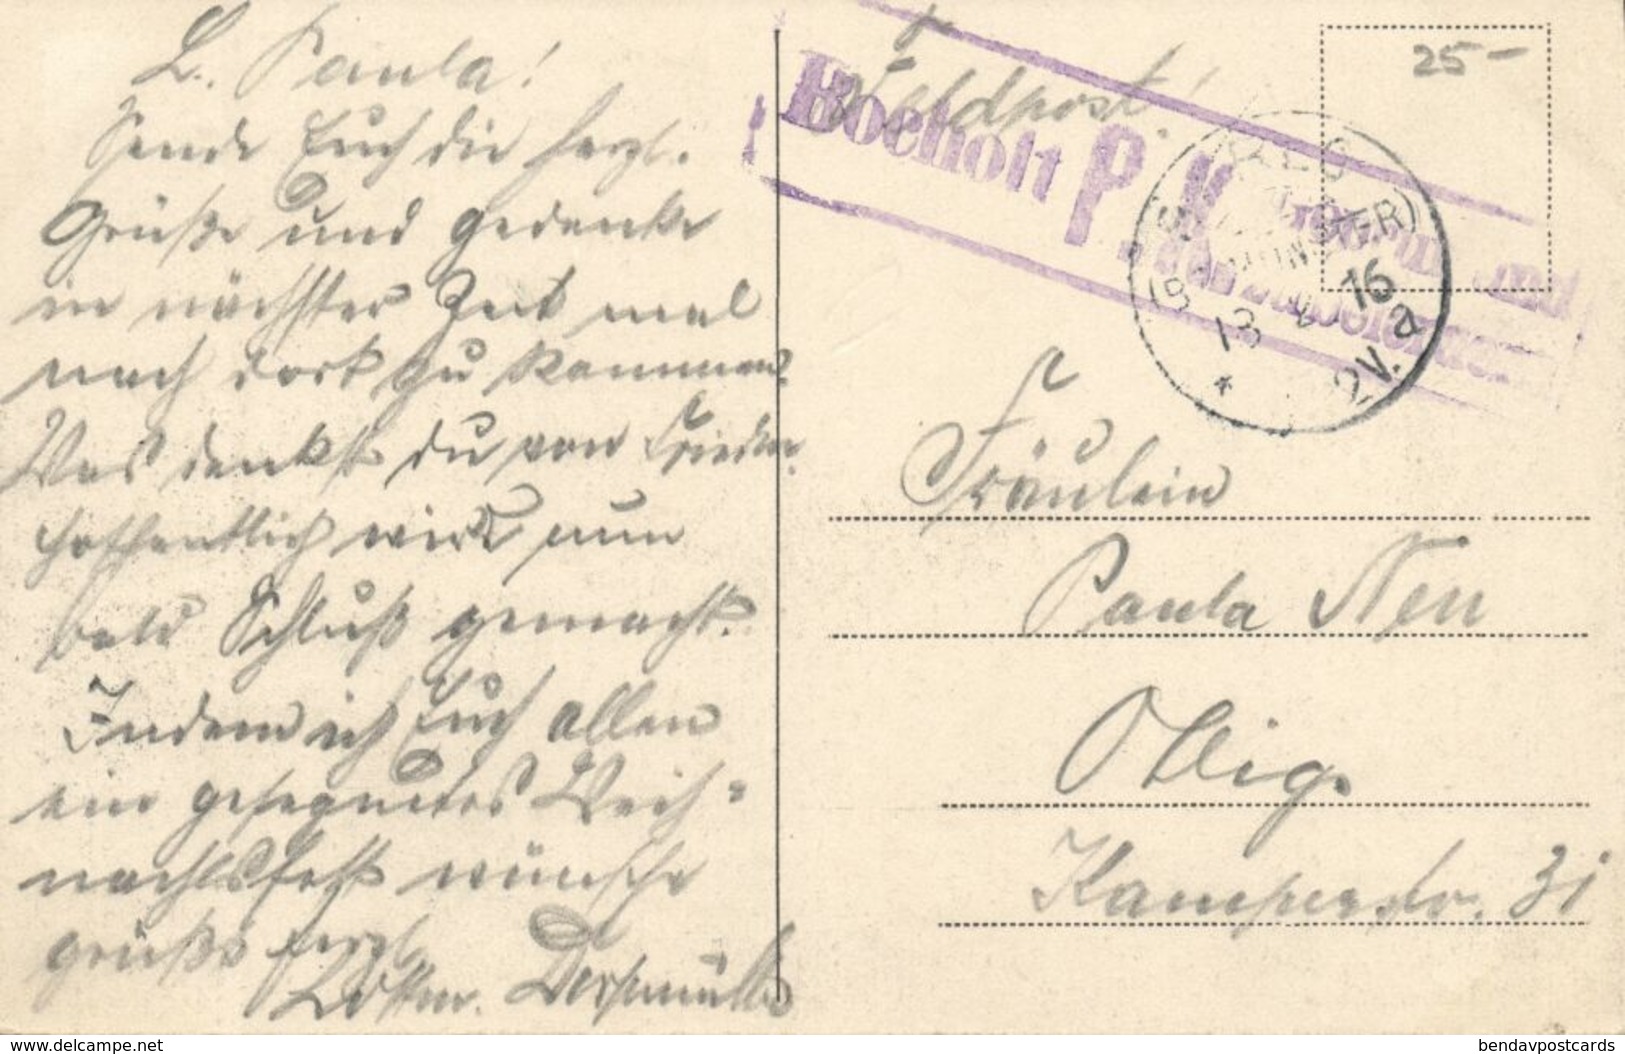 L. Paula!
Sende Euch die herzl.
Grüße und gedenke
in nächster Zeit mal
nach dort zu kommen.
Was denkst du von Frieden.
Hoffentlich wird nun
bald Schluß gemacht.
Indem ich Euch allen
ein gesegnetes Weih=
nachtsfest wünsche
grüßt herzl.
Feldpost!
25-
Bocholt P. K.
(BZ. MÜNSTER)
13 16
2V. a
Fräulein
Paula Neu
Obligs
Kamperstr. 31
delcampe.net
bendavpostcards